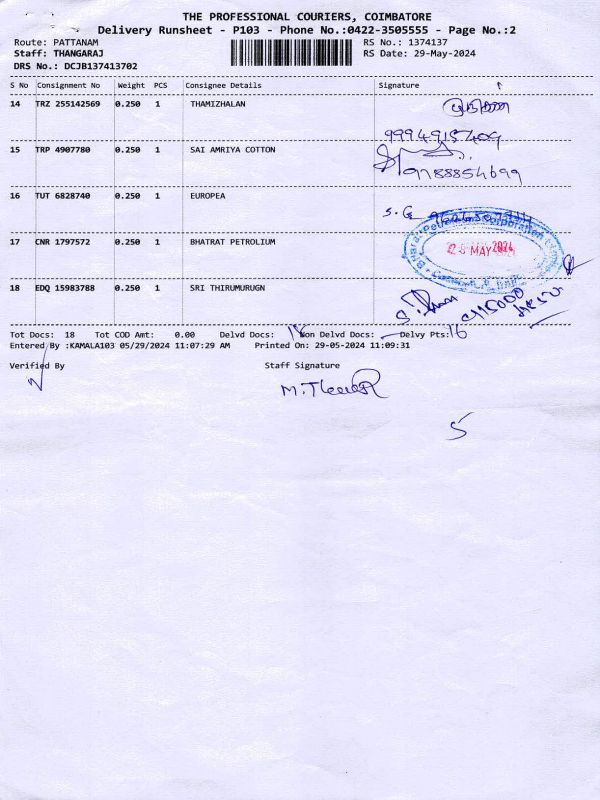 THE PROFESSIONAL COURIERS, COIMBATORE
Delivery Runsheet - P103 - Phone No.:0422-3505555 - Page No.:2
Route: PATTANAM RS No.: 1374137
Staff: THANGARAJ RS Date: 29-May-2024
DRS No.: DCJB137413702
S No Consignment No Weight PCS Consignee Details Signature
14 TRZ 255142569 0.250 1 THAMIZHALAN
9994915409
15 TRP 4907780 0.250 1 SAI AMRIYA COTTON
9788854699
16 TUT 6828740 0.250 1 EUROPEA
S. G
17 CNR 1797572 0.250 1 BHATRAT PETROLIUM
MAY 2024
18 EDQ 15983788 0.250 1 SRI THIRUMURUGN
Tot Docs: 18 Tot COD Amt: 0.00 Delvd Docs: 18 Non Delvd Docs: Delvy Pts:16
Entered By :KAMALA103 05/29/2024 11:07:29 AM Printed On: 29-05-2024 11:09:31
Verified By Staff Signature
5